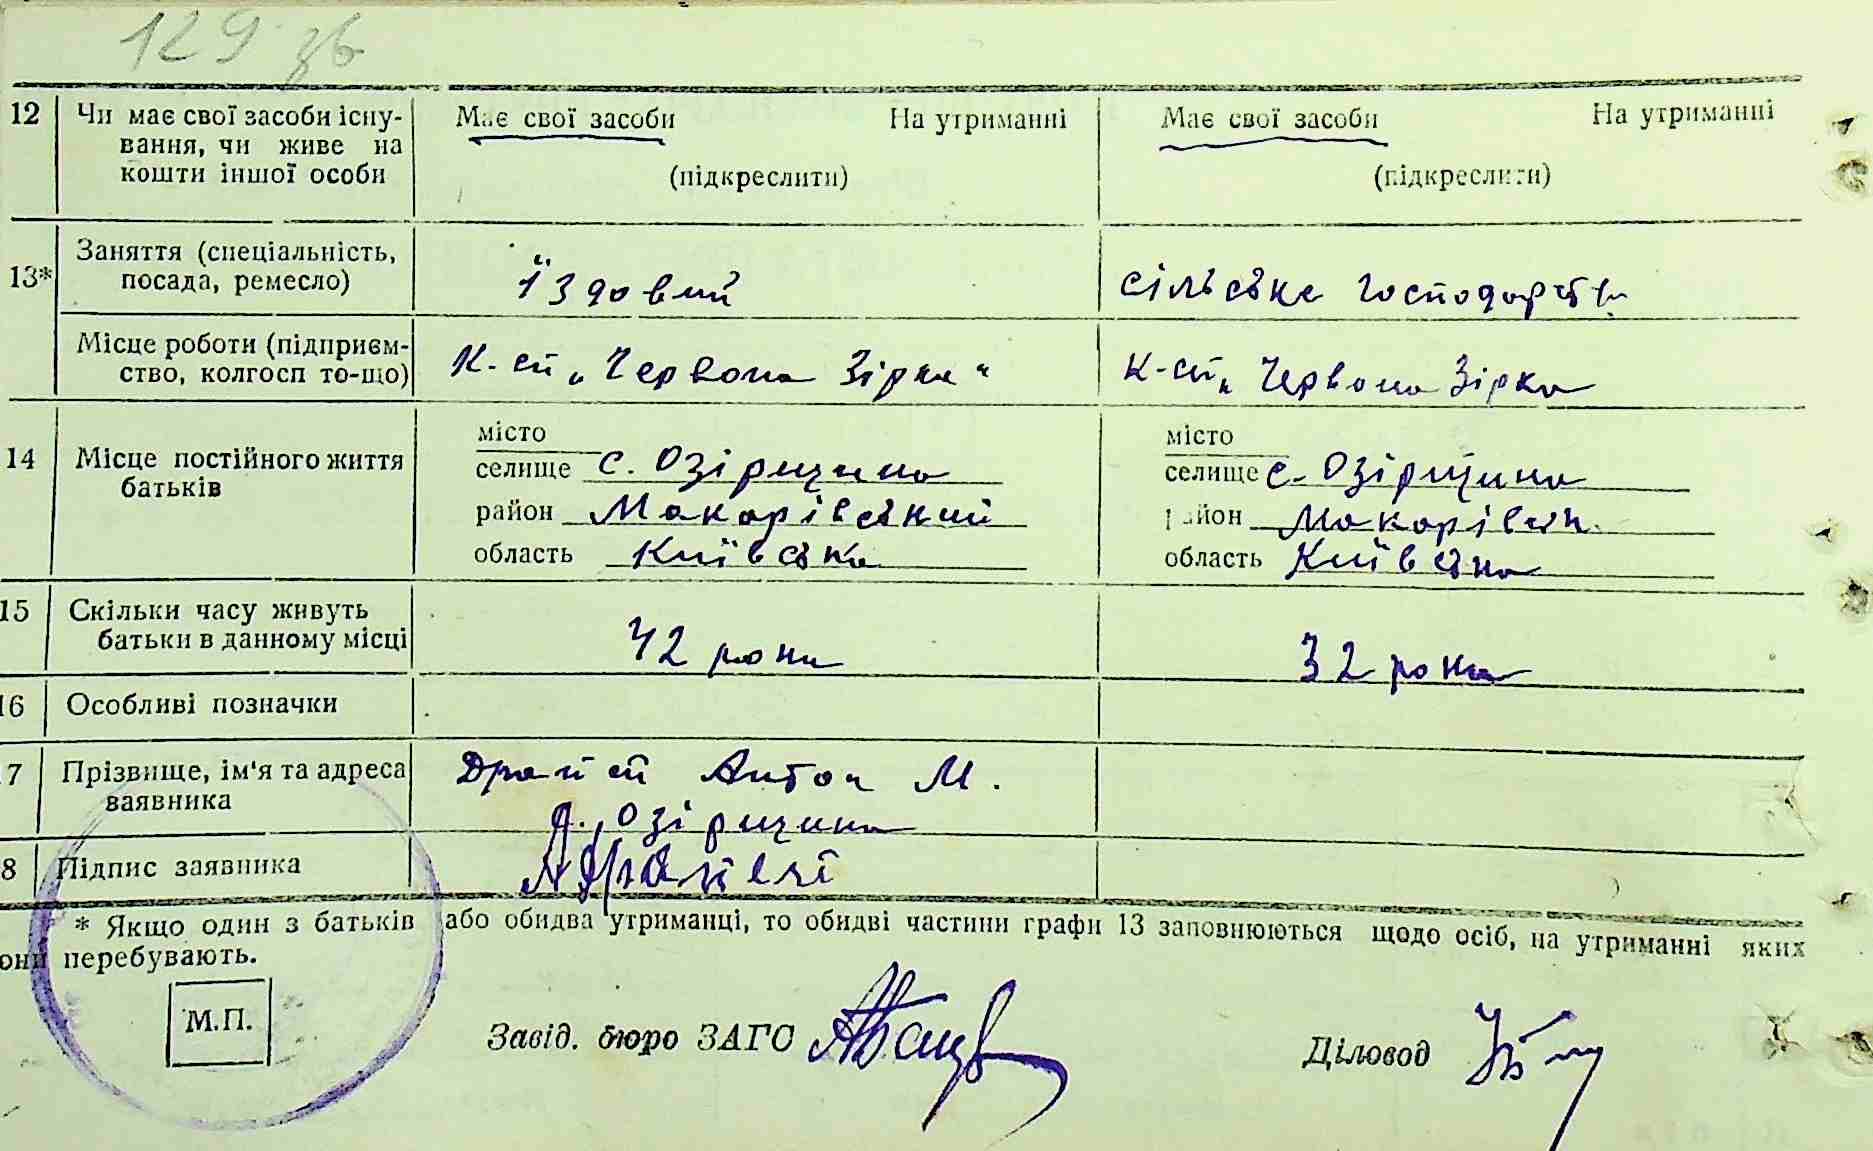 129 зв
12 Чи має свої засоби існу- Має свої засоби На утриманні Має свої засоби На утриманні
вання, чи живе на
кошти іншої особи (підкреслити) (підкреслити)
Заняття (спеціальність,
13* посада, ремесло) їздовий сільське господарств
Місце роботи (підприєм- К-сп „Червона Зірка" К-сп „Червона Зірка
ство, колгосп то-що)
місто місто
14 Місце постійного життя селище с. Озірщина селище с. Озірщина
батьків район Макарівський район Макарівськ.
область Київська область Київська
15 Скільки часу живуть
батьки в данному місці 42 роки 32 роки
16 Особливі позначки
7 Прізвище, ім'я та адреса Антон М.
заявника Озірщина
8 Підпис заявника
* Якщо один з батьків або обидва утриманці, то обидві частини графи 13 заповнюються щодо осіб, на утриманні яких
они перебувають.
М.П.
Завід. бюро ЗАГС Діловод